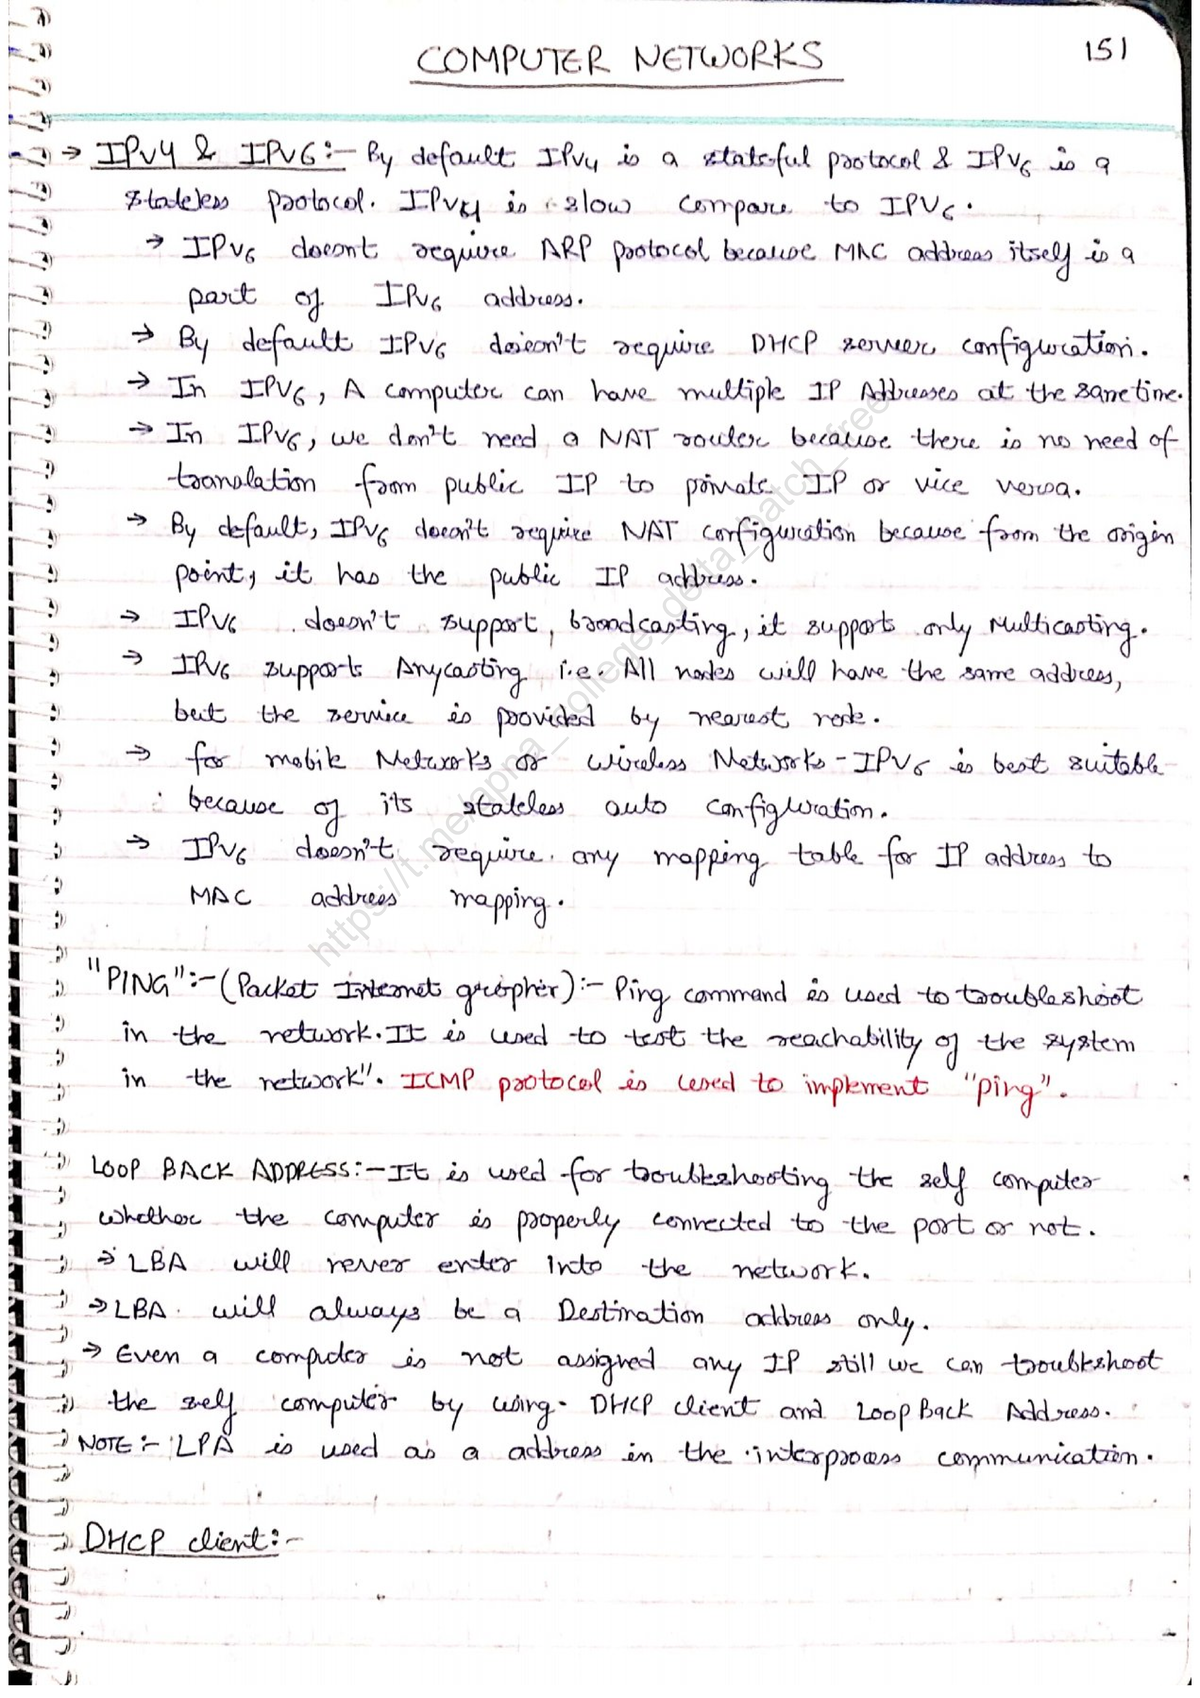 COMPUTER NETWORKS
151
→ IPv4 & IPv6:- By default IPv4 is a stateful protocol & IPv6 is a
stateless protocol. IPv4 is slow compare to IPv6.
→ IPv6 doesnt require ARP protocol because MAC address itself is a
part of IPv6 address.
→ By default IPv6 doesn't require DHCP server configuration.
→ In IPv6, A computer can have multiple IP Addresses at the same time.
→ In IPv6, we don't need a NAT router because there is no need of
translation from public IP to private IP or vice versa.
→ By default, IPv6 doesn't require NAT configuration because from the origin
point, it has the public IP address.
→ IPv6 doesn't support, broadcasting, it supports only Multicasting.
→ IPv6 supports Anycasting i.e. All nodes will have the same address,
but the service is provided by nearest node.
→ for mobile Networks or wireless Networks - IPv6 is best suitable
because of its stateless auto configuration.
→ IPv6 doesn't require any mapping table for IP address to
MAC address mapping.
https://t.me/apna_college_delta_batch_free
"PING":- (Packet Internet gropher):- Ping command is used to troubleshoot
in the network. It is used to test the reachability of the system
in the network". ICMP protocol is used to implement "ping".
LOOP BACK ADDRESS:- It is used for troubleshooting the self computer
whether the computer is properly connected to the port or not.
→ LBA will never enter into the network.
→ LBA will always be a Destination address only.
→ Even a computer is not assigned any IP still we can troubleshoot
the self computer by using DHCP client and Loop Back Address.
NOTE:- LPA is used as a address in the interprocess communication.
DHCP client:-